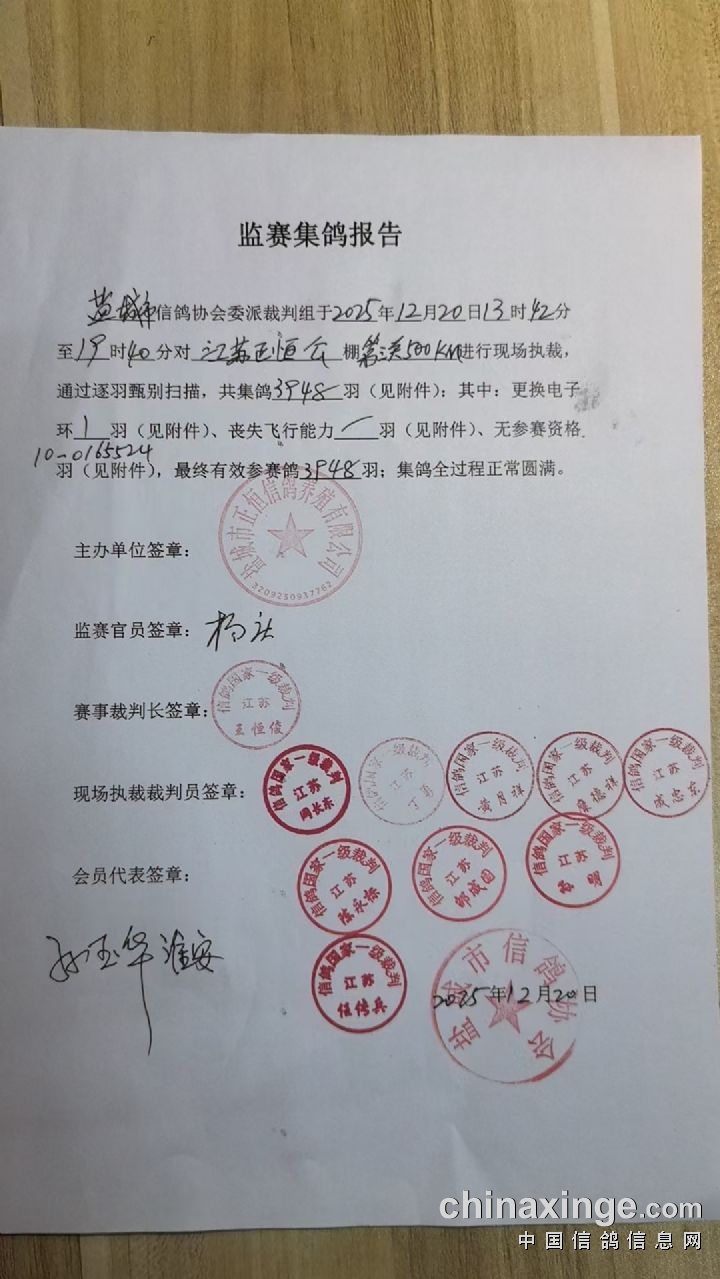 监赛集鸽报告
盐城市信鸽协会委派裁判组于2025年12月20日13时42分
至19时40分对江苏正恒公棚第三关500KM进行现场执裁,
通过逐羽甄别扫描,共集鸽3948羽(见附件):其中:更换电子
环1羽(见附件)、丧失飞行能力/羽(见附件)、无参赛资格
10-0165524
羽(见附件),最终有效参赛鸽3948羽;集鸽全过程正常圆满。
盐城市正恒信鸽养殖有限公司
3209250937762
主办单位签章:
监赛官员签章:
信鸽国家一级裁判
江苏
王恒俊
赛事裁判长签章:
现场执裁裁判员签章:
信鸽国家一级裁判
江苏
周长东
一级裁判
江苏
信鸽国家一级裁判
江苏
黄月祥
信鸽国家一级裁判
江苏
信鸽国家一级裁判
江苏
成忠东
会员代表签章:
信鸽国家一级裁判
江苏
陈永栋
信鸽国家一级裁判
江苏
邹成国
信鸽国家一级裁判
江苏
孙玉华 淮安
信鸽国家一级裁判
江苏
伍传兵
市信鸽协会
2025年12月20日
chinaxinge.com
中国信鸽信息网